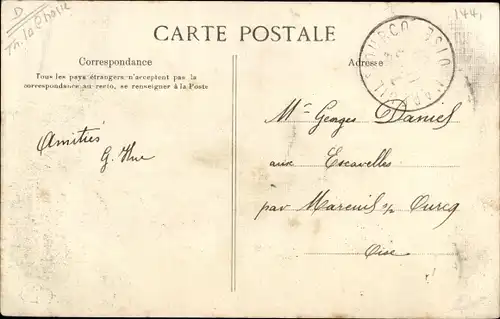 D
144
CARTE POSTALE
Correspondance
Tous les pays étrangers n'acceptent pas la
correspondance au recto, se renseigner à la Poste
Adresse
Amitiés
G. Hue
Mr Georges Daniel
aux Escavelles
par Mareuil s/ Ourcq
Oise